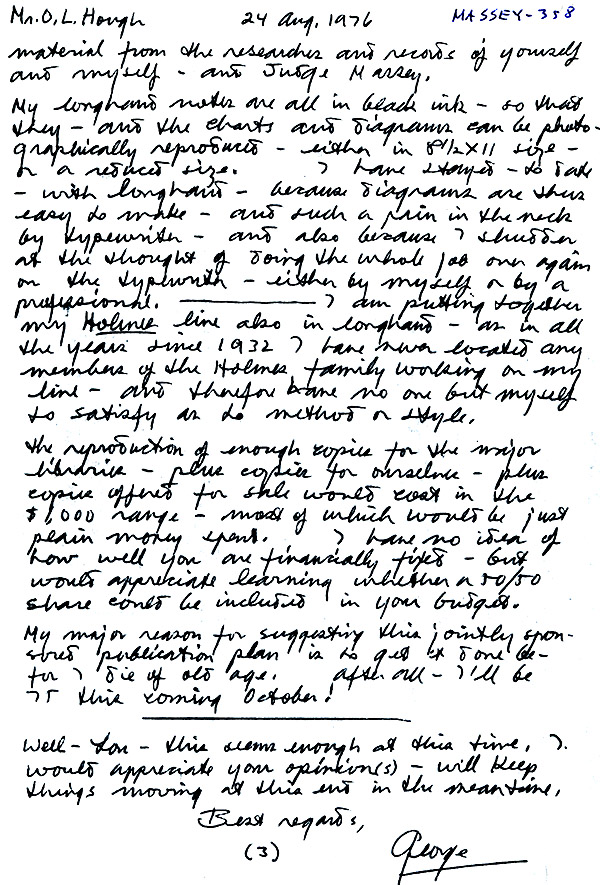 Mr. O. L. Hough 24 Aug. 1976 MASSEY-358
material from the researches and records of yourself
and myself - and Judge Massey.
My longhand notes are all in black ink - so that
they - and the charts and diagrams can be photo-
graphically reproduced - either in 8½x11 size -
or a reduced size. I have stayed - to date
- with longhand - because diagrams are thus
easy to make - and such a pain in the neck
by typewriter - and also because I shudder
at the thought of doing the whole job over again
on the typewriter - either by myself or by a
professional. ———— I am putting together
my Holmes line also in longhand - as in all
the years since 1932 I have never located any
members of the Holmes family working on my
line - and therefore have no one but myself
to satisfy as to method or style.
The reproduction of enough copies for the major
libraries - plus copies for ourselves - plus
copies offered for sale would cost in the
$1,000 range - most of which would be just
plain money spent. I have no idea of
how well you are financially fixed - but
would appreciate learning whether a 50/50
share could be included in your budget.
My major reason for suggesting this jointly spon-
sored publication plan is to get it done be-
for I die of old age. After all - I'll be
75 this coming October!
Well - Lou - this seems enough at this time. I
would appreciate your opinion(s) - will keep
things moving at this end in the meantime.
Best regards,
(3) George